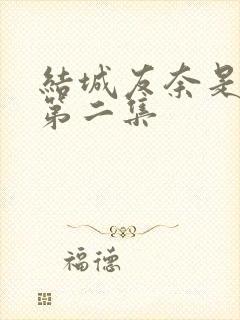 結城友奈是
第二集
福德